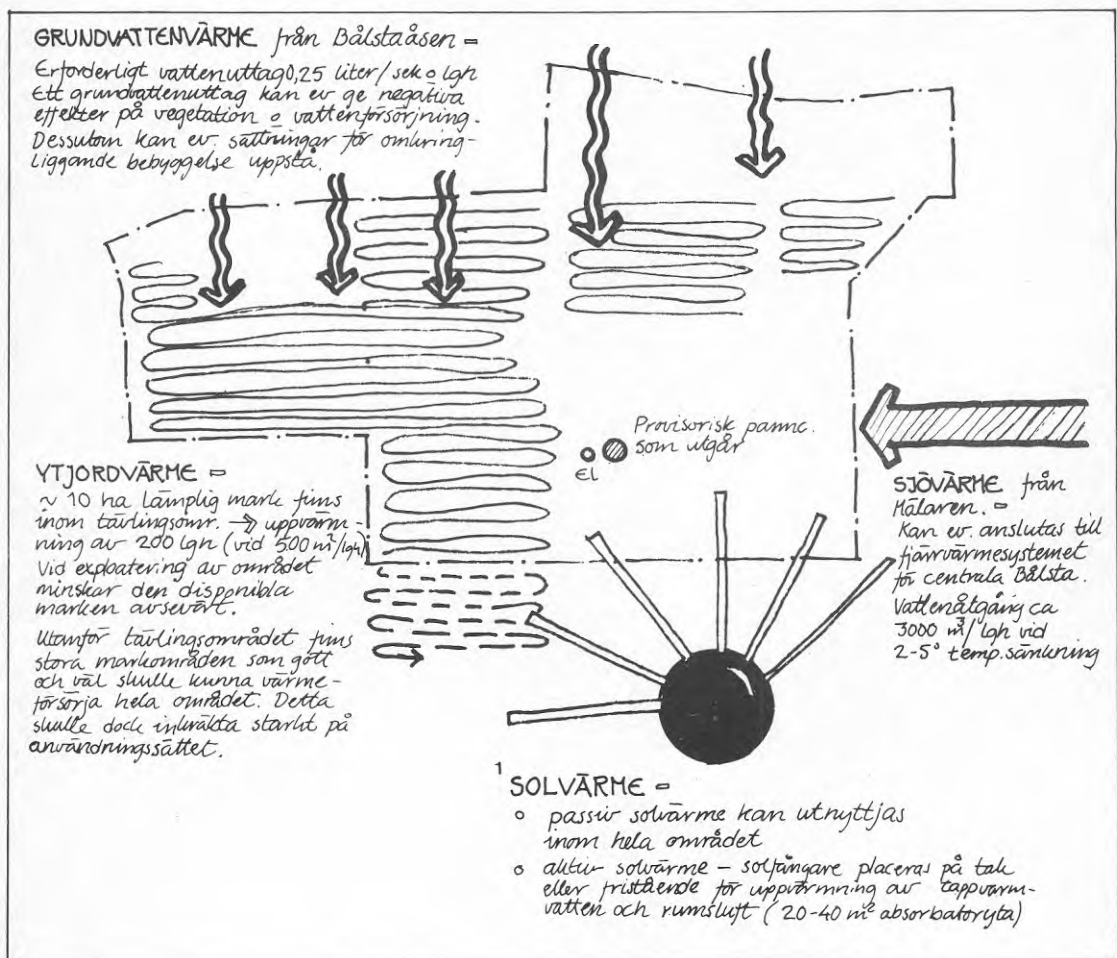 GRUNDVATTENVÄRME från Bålstaåsen =
Erforderligt vattenuttag 0,25 liter/sek o lgh
Ett grundvattenuttag kan ev ge negativa
effekter på vegetation o vattenförsörjning.
Dessutom kan ev. sättningar för omkring-
liggande bebyggelse uppstå.
Provisorisk panna.
som utgår
EL
YTJORDVÄRME =
~ 10 ha lämplig mark finns
inom tävlingsomr. → uppvärm-
ning av 200 lgh (vid 500 m²/lgh)
Vid exploatering av området
minskar den disponibla
marken avsevärt.
Utanför tävlingsområdet finns
stora markområden som gott
och väl skulle kunna värme-
försörja hela området. Detta
skulle dock inkräkta starkt på
användningssättet.
SJÖVÄRME från
Mälaren. =
Kan ev. anslutas till
fjärrvärmesystemet
för centrala Bålsta.
Vattenåtgång ca
3000 m³/lgh vid
2-5° temp.sänkning
1
SOLVÄRME =
o passiv solvärme kan utnyttjas
inom hela området
o aktiv solvärme – solfångare placeras på tak
eller fristående för uppvärmning av tappvarm-
vatten och rumsluft (20-40 m² absorbatoryta)